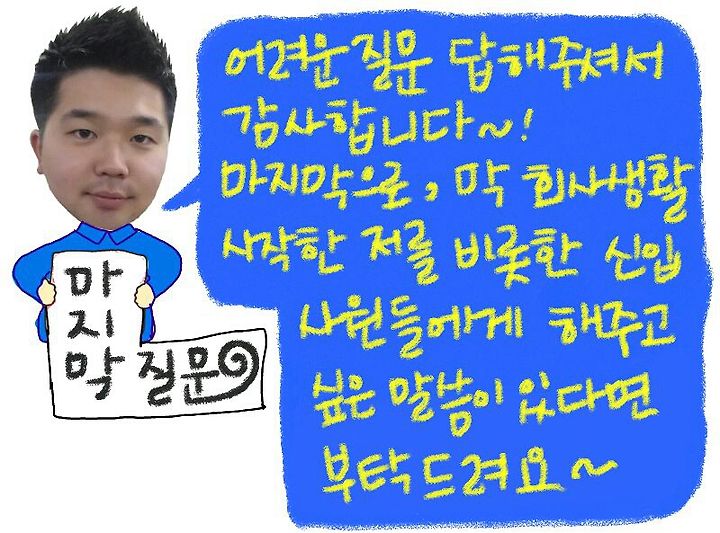 어려운 질문 답해주셔서
감사합니다~!
마지막으로, 막 회사생활
시작한 저를 비롯한 신입
사원들에게 해주고
싶은 말씀이 있다면
부탁드려요~
마
지
막 질문